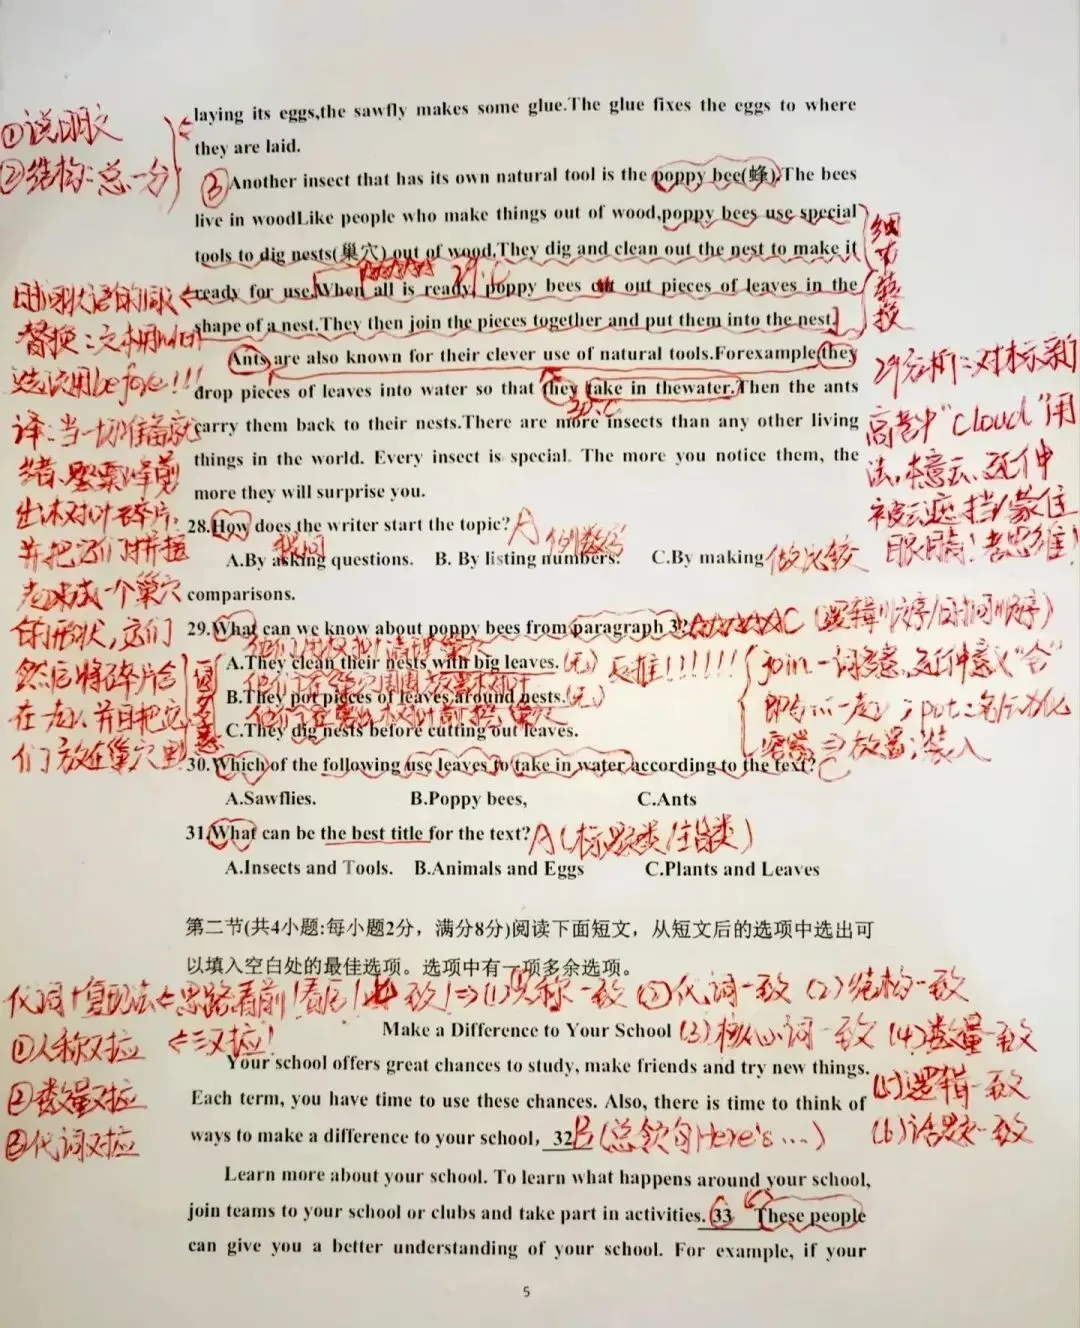 laying its eggs,the sawfly makes some glue.The glue fixes the eggs to where
①说明文
they are laid.
②结构:总一分
③Another insect that has its own natural tool is the poppy bee(蜂).The bees
live in woodLike people who make things out of wood,poppy bees use special
tools to dig nests(巢穴) out of wood.They dig and clean out the nest to make it
29.C
ready for use.When all is ready, poppy bees cut out pieces of leaves in the
shape of a nest.They then join the pieces together and put them into the nest.
Ants are also known for their clever use of natural tools.Forexample,they
drop pieces of leaves into water so that they take in thewater.Then the ants
30.C
carry them back to their nests.There are more insects than any other living
things in the world. Every insect is special. The more you notice them, the
more they will surprise you.
细节
替换:文本用
选项用before!!!
译:当一切准备就
绪、罂粟蜂剪
出木对叶碎片,
并把它们拼接
起来成一个巢穴
的形状,它们
然后将碎片合
在一起、并且把它
们放在巢穴里
29分析:对标新
高考中"Cloud"用
法,本意云、延伸
被云遮挡/蒙住
眼睛!考思维!
28.How does the writer start the topic? A
A.By asking questions. B. By listing numbers. C.By making
提问
列数字
做比较
comparisons.
29.What can we know about poppy bees from paragraph 3? C (逻辑顺序/时间顺序)
A.They clean their nests with big leaves. (无)
B.They put pieces of leaves around nests. (无)
C.They dig nests before cutting out leaves.
同义
join一词多意、延伸意义"合"
即合在一起;put:
⇒放置;装入
30.Which of the following use leaves to take in water according to the text? C
A.Sawflies. B.Poppy bees, C.Ants
31.What can be the best title for the text? A(标题类/主旨类)
A.Insects and Tools. B.Animals and Eggs C.Plants and Leaves
第二节(共4小题:每小题2分，满分8分)阅读下面短文，从短文后的选项中选出可
以填入空白处的最佳选项。选项中有一项多余选项。
代词+复现法←思路看前!看后!一致!⇒(1)人称一致 ③代词一致 (2)结构一致
Make a Difference to Your School (3)核心词一致 (4)数量一致
①人称对应 ←三对应!
Your school offers great chances to study, make friends and try new things.
(5)逻辑一致
②数量对应
Each term, you have time to use these chances. Also, there is time to think of
ways to make a difference to your school, 32 B (总领句Here's ...)
(6)话题一致
③代词对应
Learn more about your school. To learn what happens around your school,
join teams to your school or clubs and take part in activities. 33 These people
can give you a better understanding of your school. For example, if your
5